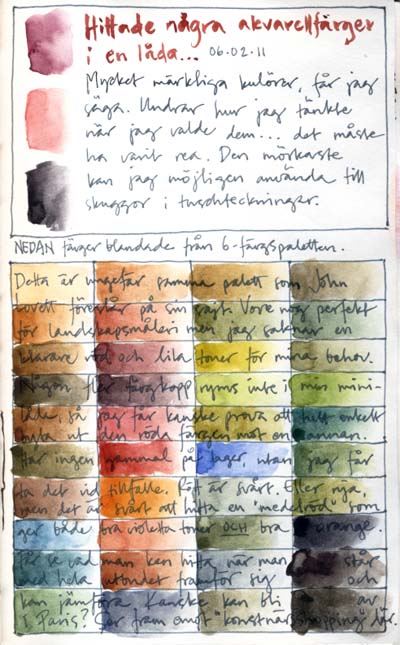 Hittade några akvarellfärger
i en låda... 06.02.11
Mycket märkliga kulörer, får jag
säga. Undrar hur jag tänkte
när jag valde dem... det måste
ha varit rea. Den mörkaste
kan jag möjligen använda till
skuggor i tuschteckningar.
NEDAN färger blandade från 6-färgspaletten.
Detta är ungefär samma palett som John
Lovett föreslår på sin sajt. Vore nog perfekt
för landskapsmåleri men jag saknar en
klarare röd och lila toner för mina behov.
Någon fler färgkopp ryms inte i min mini-
låda, så jag får kanske prova att helt enkelt
byta ut den röda färgen mot en annan.
Har ingen gammal på lager, utan jag får
ta det vid tillfälle. Rött är svårt. Eller nja,
men det är svårt att hitta en "medelröd" som
ger både bra violetta toner OCH bra orange.
får se vad man kan hitta när man står
med hela utbudet framför sig och
kan jämföra. Kanske kan bli av
i Paris? Ser fram emot "konstnärsshopping" där.